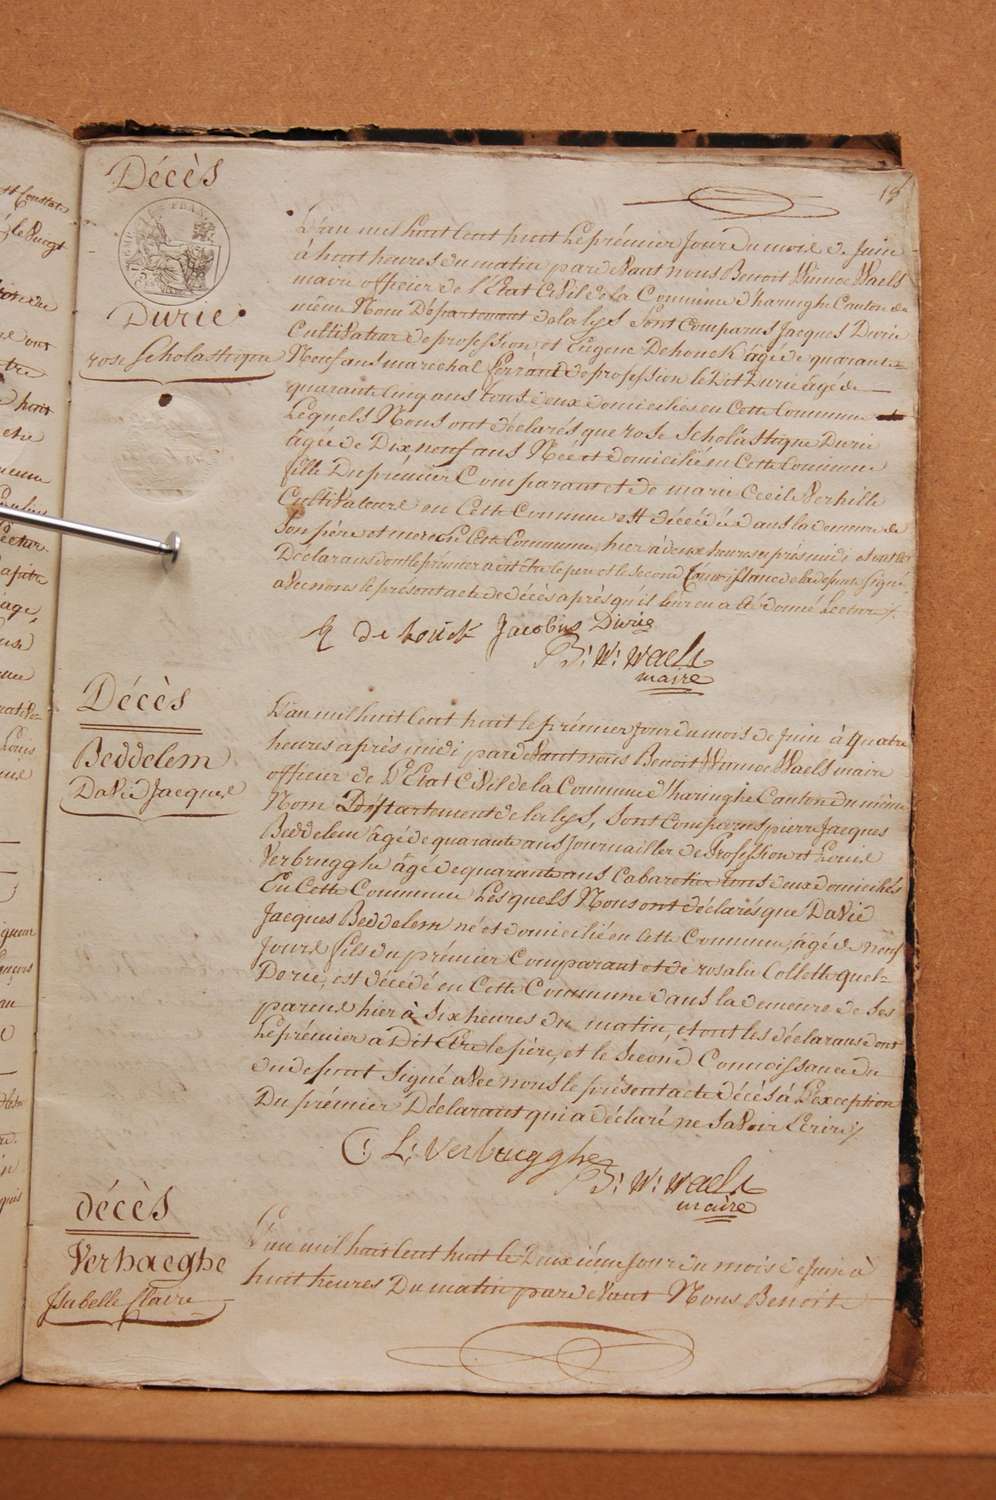 19
Décès
EMP. FRANÇAIS
Durie
rose Scholastique
L'an mil huit Cent huit Le prémier Jour du mois de Juin
à huit heures du matin pardeVant nous Benoit Winnoc Waels
maire officier de l'Etat CiVil de la Commune d'haringhe Canton du
même Nom Département de la lys Sont Comparus Jacques Durie
Cultivateur de profession et Eugene Dehouck âgé de quarante
Neuf ans marechal ferrant de profession le Dit Durie âgé de
quarante Cinq ans tous deux domiciliés en Cette Commune
Lesquels Nous ont déclarés que rose Scholastique Durie
âgée de Dix neuf ans Née et domiciliée en Cette Commune
fille Du prémier Comparant et de marie Cecile Verhille
CultiVateurs en Cette Commune est décédée dans la demeure de
Son père et mere en Cette Commune, hier à deux heures après midi et ont les
Déclarans dont le prémier a dit être le pere et le Second Connoissance de la defunte Signé
aVec nous le présent acte de décès après qu'il leur en a été donné Lecture
E de houck Jacobus Durie
B: W: Waels
maire
Décès
Beddelem
DaVid Jacques
L'an mil huit Cent huit le prémier Jour du mois de Juin à quatre
heures après midi pardeVant nous Benoit Winnoc Waels maire
officier de L'Etat CiVil de la Commune d'haringhe Canton du même
Nom Département de la lys, Sont Comparus pierre Jacques
Beddelem âgé de quarante ans Journailler de Profession et Louis
Verbrugghe âgé de quarante ans Cabaretier tous deux domiciliés
En Cette Commune Lesquels Nous ont déclarés que DaVid
Jacques Beddelem né et domicilié en Cette Commune, âgé de neuf
Jours fils du prémier Comparant et de rosalie Collette quel-
Derie, est décédé en Cette Commune dans la demeure de Ses
parens hier à Six heures du matin, et ont les déclarans dont
Le prémier à Dit Etre le père, et le Second Connoissance du
du defunt Signé aVec nous le présent acte décès à L'exception
Du prémier Déclarant qui a déclaré ne SaVoir Ecrire
C: L: Verbrugghe
B: W: Waels
maire
décès
Verhaeghe
Isabelle Claire
L'an mil huit Cent huit le Deuxième Jour du mois de Juin à
huit heures Du matin pardeVant Nous Benoit